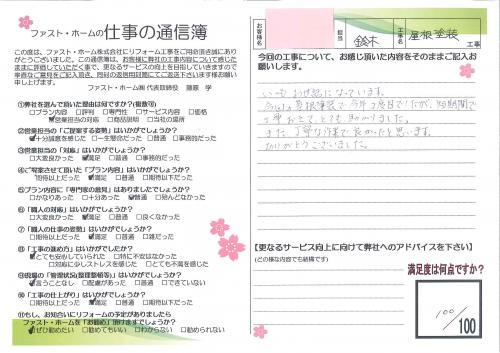 ファスト・ホームの仕事の通信簿
この度は、ファスト・ホーム株式会社にリフォーム工事をご用命頂き誠にあり
がとうございました。この通信簿は、お客様に弊社の工事内容について感じた
ままに評価していただく事で、更なるサービスの向上を目指していきますので
率直なご意見をご記入頂き、同封の返信用封筒にてご返送下さいます様お願い
申し上げます。
ファスト・ホーム㈱ 代表取締役 藤原 学
①弊社を選んで頂いた理由は何ですか?(複数可)
□プラン内容 □評判 □専門性 □サービス内容 □価格
☑営業担当の対応 □商品説明 □当社の場所
②営業担当の「ご提案する姿勢」はいかがでしょうか?
☑十分誠意を感じた □一生懸命だった □普通 □事務的だった
③営業担当の「対応」はいかがでしょうか?
□大変良かった ☑満足 □普通 □事務的だった
④ご提案させて頂いた「プラン内容」はいかがでしょうか?
□期待以上だった ☑満足 □普通 □期待以下だった
⑤プラン内容に「専門家の意見」はありましたでしょうか?
□かなりあった □十分あった ☑普通 □殆んどなかった
⑥「職人の対応」はいかがでしょうか?
□大変良かった ☑満足 □普通 □良くなかった
⑦「職人の仕事の姿勢」はいかがでしょうか?
□期待以上だった ☑満足 □普通 □雑だった
⑧「工事の進め方」はいかがでしたか?
☑とても安心していられた □特に不安はなかった
□対応に少しストレスを感じた □とても不満を感じた
⑨現場の「管理状況(整理整頓等)」はいかがでしょうか?
☑言うことなし □配慮があった □普通 □できていない
⑩「工事の仕上がり」はいかがでしょうか?
□期待以上だった ☑満足 □普通 □期待以下だった
⑪もし、お知合いにリフォームの予定がありましたら
ファスト・ホームを「お勧め」頂けますでしょうか?
☑ぜひ勧めたい □勧めてもいい □わからない □勧められない
お客様名
担当
鈴木
工事名
屋根塗装
工事
今回の工事について、お感じ頂いた内容をそのままご記入お
願いします。
いつもお世話になっています。
今回は屋根塗装で今年2度目でしたが、短期間で
工事おえて、とても助かりました。
また、丁寧な作業で良かったと思います。
ありがとうございました。
【更なるサービス向上に向けて弊社へのアドバイスを下さい】
(どの様な内容でも結構です)
満足度は何点ですか?
100/100